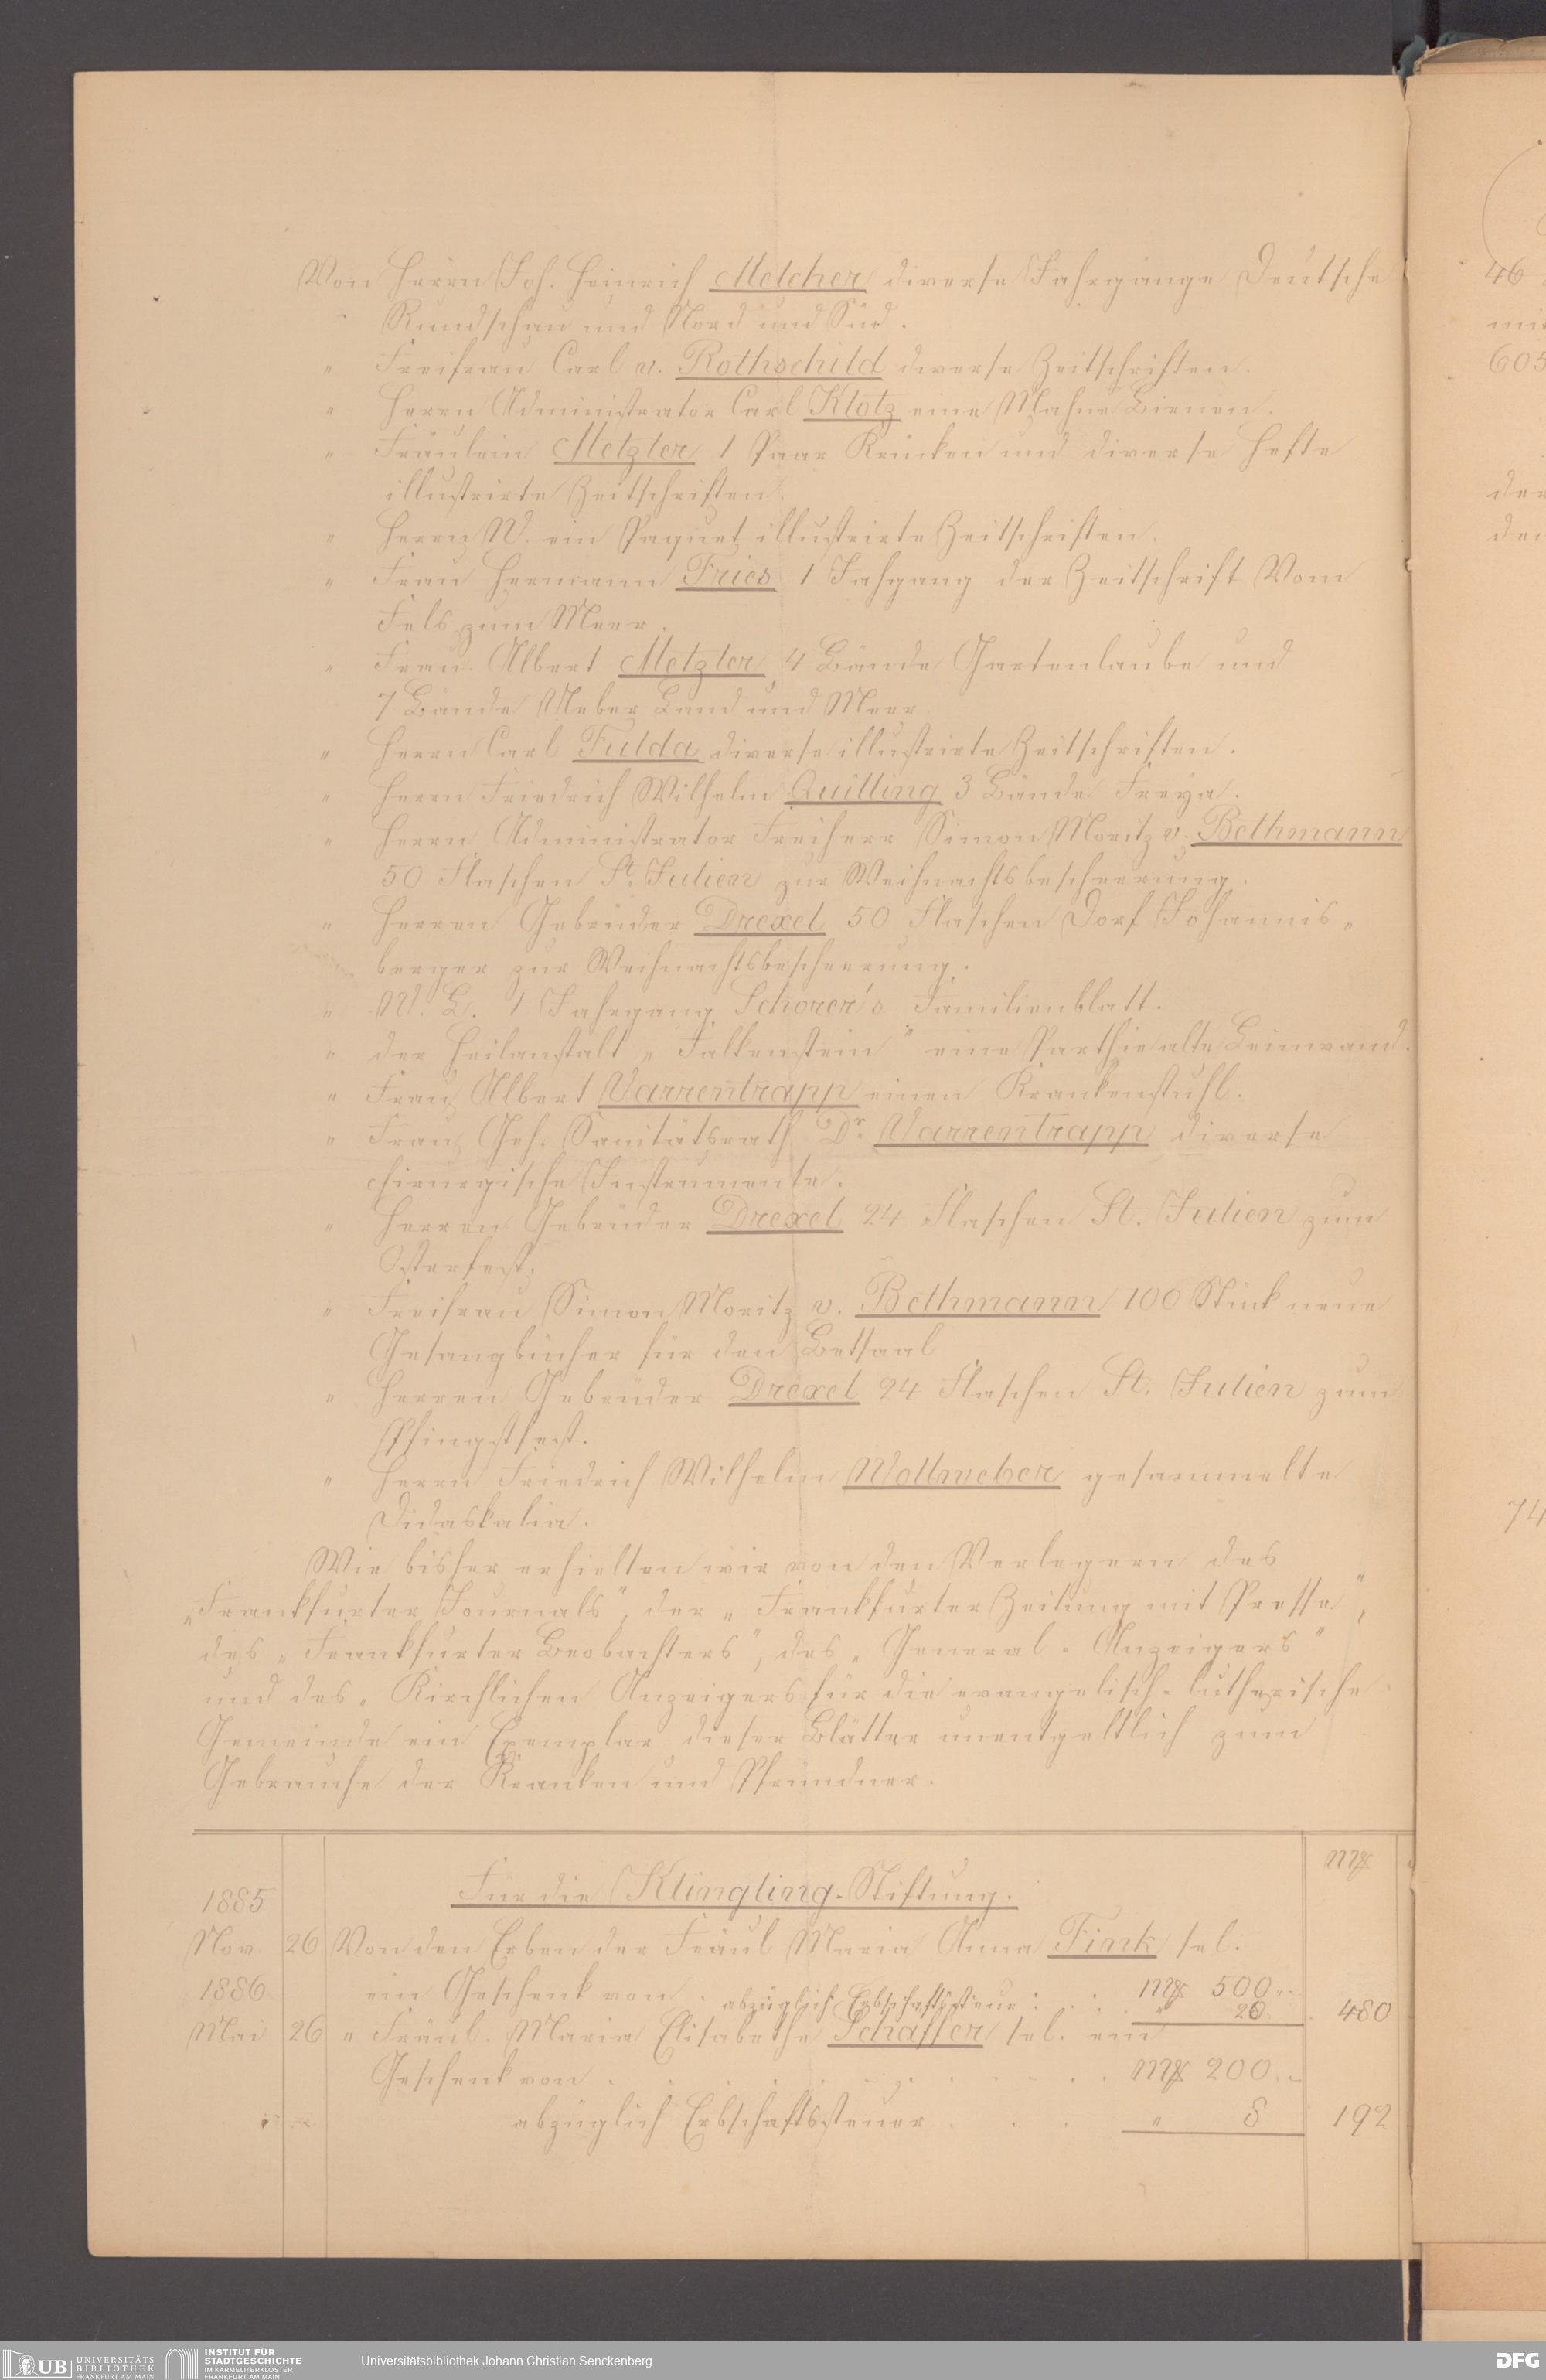 Von Herrn Joh. Heinrich Melcher diverse Jahrgänge Deutsche
Rundschau und Nord und Süd.
" Freifrau Carl v. Rothschild diverse Zeitschriften.
" Herrn Administrator Carl Klotz eine Mahne Birnen.
" Fräulein Metzler 1 Paar Krücken und diverse Hefte
illustrirte Zeitschriften.
" Herrn W. ein Paquet illustrirte Zeitschriften.
" Frau Hermann Fries 1 Jahgang der Zeitschrift Vom
Fels zum Meer.
" Frau Albert Metzler 4 Bände Gartenlaube und
7 Bände Ueber Land und Meer.
" Herrn Carl Fulda diverse illustrirte Zeitschriften.
" Herrn Friedrich Wilhelm Quilling 3 Bände Freya.
" Herrn Administrator Freiherr Simon Moritz v. Bethmann
50 Flaschen St. Julien zur Weihnachtsbescheerung.
" Herren Gebrüder Drexel 50 Flaschen Dorf Johannis-
berger zur Weihnachtsbescheerung.
" W. L. 1 Jahrgang Schorer's Familienblatt.
" der Heilanstalt „Falkenstein" eine Parthie alte Leinwand.
" Frau Albert Varrentrapp einen Krankenstuhl.
" Frau Geh. Sanitätsrath Dr. Varrentrapp diverse
chirurgische Instrumente.
" Herren Gebrüder Drexel 24 Flaschen St. Julien zum
Osterfest.
" Freifrau Simon Moritz v. Bethmann 100 Stück neue
Gesangbücher für den Betsaal
" Herren Gebrüder Drexel 24 Flaschen St. Julien zum
Pfingstfest.
" Herrn Friedrich Wilhelm Wollweber gesammelte
Didaskalia.
Wie bisher erhielten wir von den Verlegern des
„Frankfurter Journals", der „Frankfurter Zeitung mit Presse",
des „Frankfurter Beobachters", des „General-Anzeigers"
und des „Kirchlichen Anzeigers für die evangelisch-lutherische
Gemeinde ein Exemplar dieser Blätter unentgeltlich zum
Gebrauche der Kranken und Pfründner.
Für die Klingling-Stiftung.
1885
Nov. 26 Von den Erben der Fräul Maria Anna Fink sel.
1886 ein Geschenk von . M 500.-
abzüglich Erbschaftssteuer . . . " 20 480
Mai 26 " Fräul. Maria Elisabethe Schaffer sel. ein
Geschenk von . . . . . M 200.-
abzüglich Erbschaftssteuer . . . " 8 192
46
605
74
UB UNIVERSITÄTS BIBLIOTHEK FRANKFURT AM MAIN
INSTITUT FÜR STADTGESCHICHTE IM KARMELITERKLOSTER FRANKFURT AM MAIN
Universitätsbibliothek Johann Christian Senckenberg
DFG